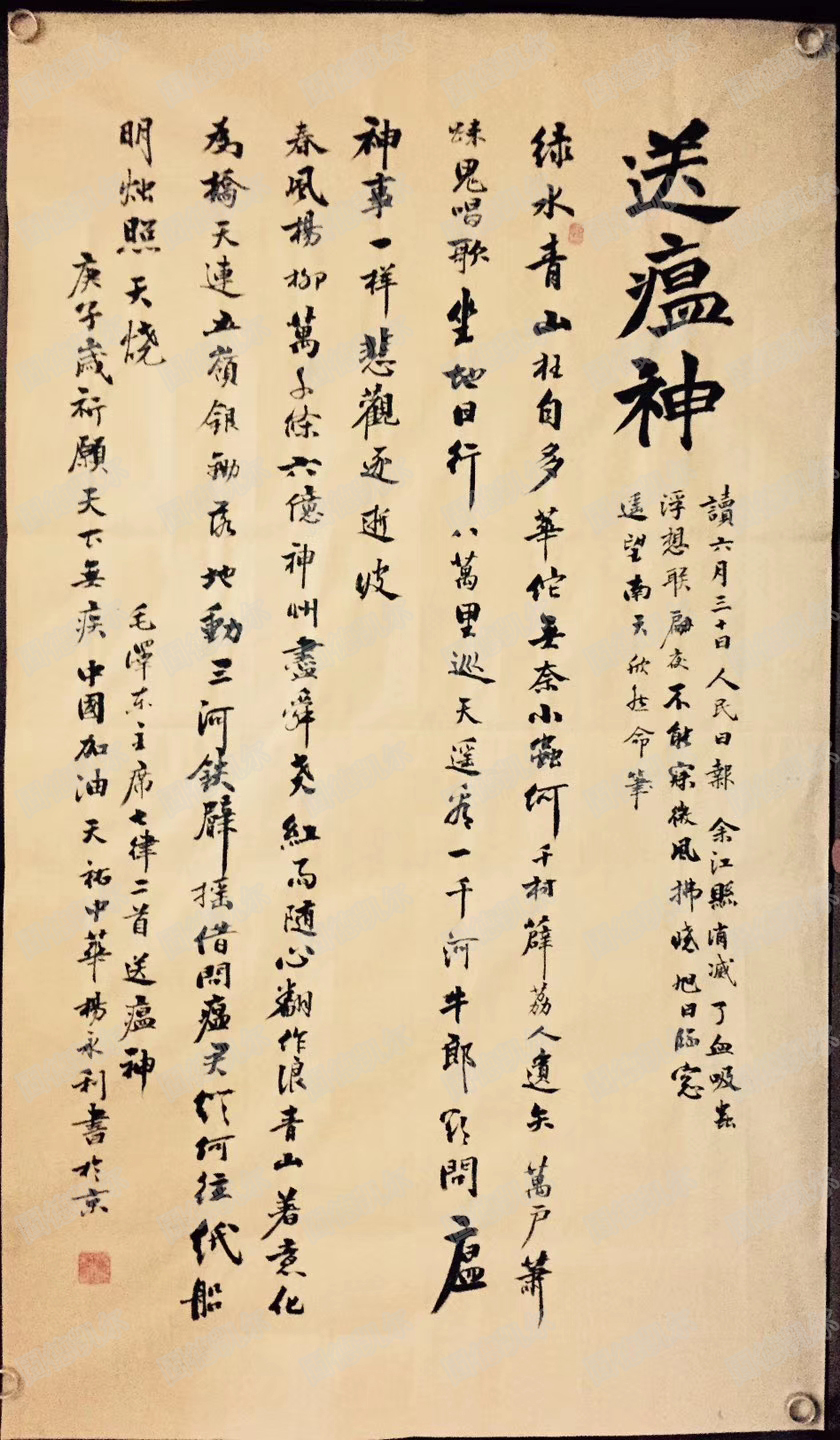 送瘟神
讀六月三十日人民日報余江縣消滅了血吸蟲
浮想联翩夜不能寐微風拂曉旭日臨窗
遥望南天欣然命筆
绿水青山枉自多華佗無奈小蟲何千村薜荔人遺矢萬户萧
疎鬼唱歌坐地日行八萬里巡天遥看一千河牛郎欲問瘟
神事一样悲觀逐逝波
春風楊柳萬千條六億神州盡舜尧紅雨随心翻作浪青山着意化
為橋天連五嶺銀锄落地動三河鉄臂摇借問瘟君欲何往纸船
明烛照天燒
毛澤东主席七律二首送瘟神
庚子歲祈願天下無疾中國加油天祐中華楊永利書於京